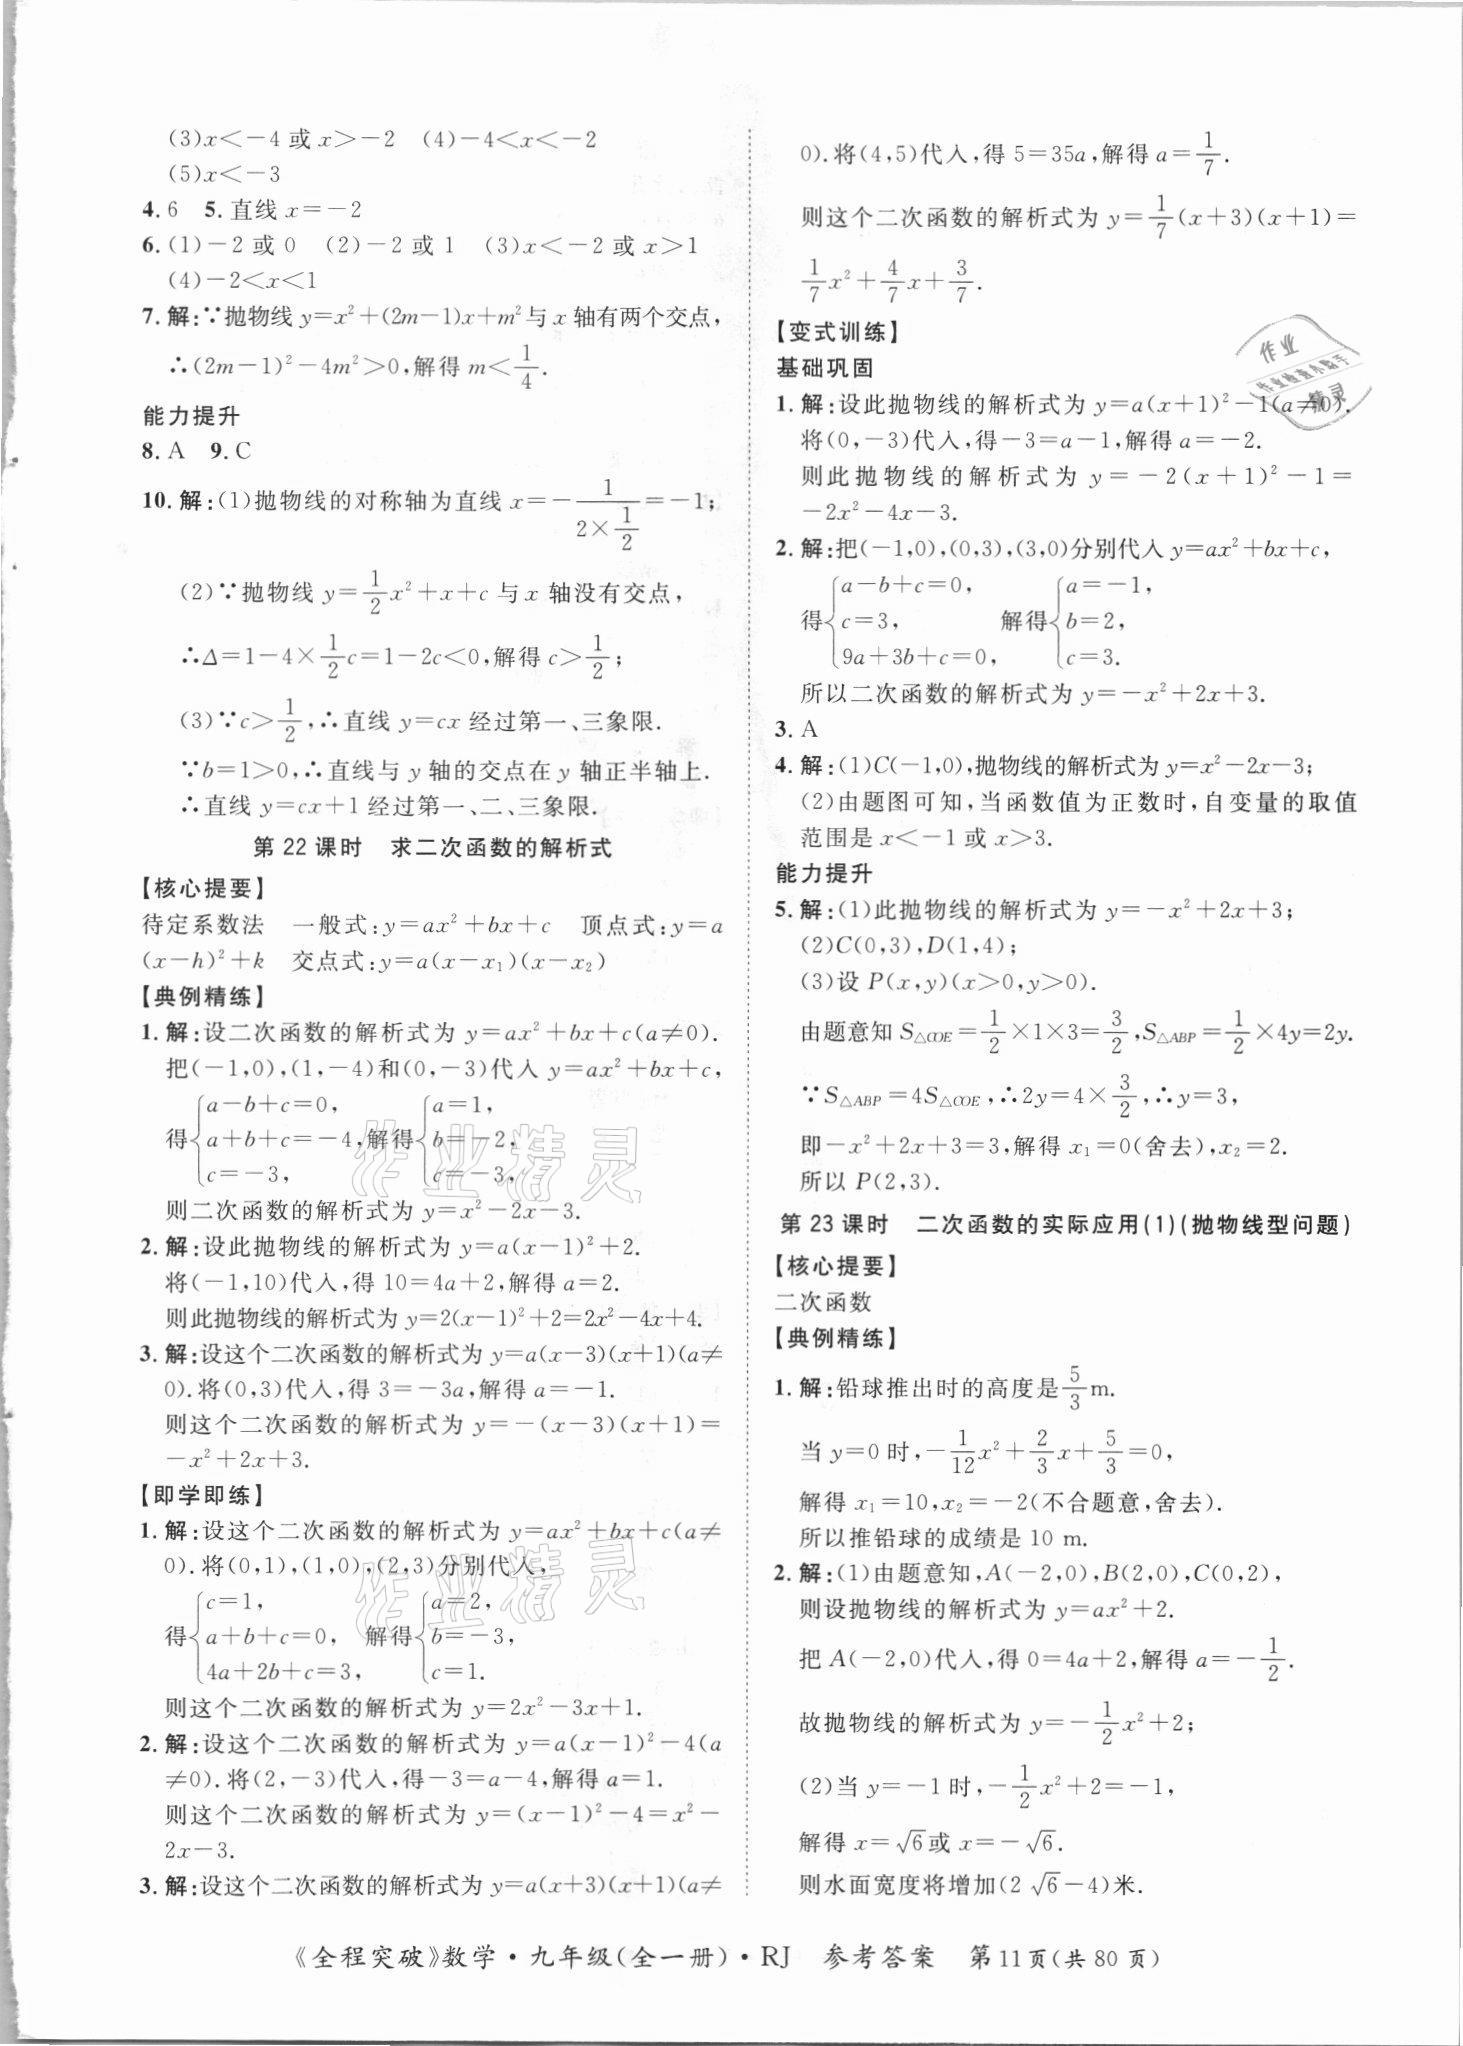 (3)x<-4或x>-2　(4)-4<x<-2
(5)x<-3
4.6　5.直线x=-2
6.(1)-2或0　(2)-2或1　(3)x<-2或x>1
(4)-2<x<1
7.解:∵抛物线y=x²+(2m-1)x+m²与x轴有两个交点,
∴(2m-1)²-4m²>0,解得m<1/4.
能力提升
8.A　9.C
10.解:(1)抛物线的对称轴为直线x=-1/(2×1/2)=-1;
(2)∵抛物线y=1/2x²+x+c与x轴没有交点,
∴Δ=1-4×1/2c=1-2c<0,解得c>1/2;
(3)∵c>1/2,∴直线y=cx经过第一、三象限.
∵b=1>0,∴直线与y轴的交点在y轴正半轴上.
∴直线y=cx+1经过第一、二、三象限.
第22课时　求二次函数的解析式
【核心提要】
待定系数法　一般式:y=ax²+bx+c　顶点式:y=a
(x-h)²+k　交点式:y=a(x-x₁)(x-x₂)
【典例精练】
1.解:设二次函数的解析式为y=ax²+bx+c(a≠0).
把(-1,0),(1,-4)和(0,-3)代入y=ax²+bx+c,
得{a-b+c=0, a+b+c=-4, c=-3, 解得{a=1, b=-2, c=-3,
则二次函数的解析式为y=x²-2x-3.
2.解:设此抛物线的解析式为y=a(x-1)²+2.
将(-1,10)代入,得10=4a+2,解得a=2.
则此抛物线的解析式为y=2(x-1)²+2=2x²-4x+4.
3.解:设这个二次函数的解析式为y=a(x-3)(x+1)(a≠
0).将(0,3)代入,得3=-3a,解得a=-1.
则这个二次函数的解析式为y=-(x-3)(x+1)=
-x²+2x+3.
【即学即练】
1.解:设这个二次函数的解析式为y=ax²+bx+c(a≠
0).将(0,1),(1,0),(2,3)分别代入,
得{c=1, a+b+c=0, 4a+2b+c=3, 解得{a=2, b=-3, c=1.
则这个二次函数的解析式为y=2x²-3x+1.
2.解:设这个二次函数的解析式为y=a(x-1)²-4(a
≠0).将(2,-3)代入,得-3=a-4,解得a=1.
则这个二次函数的解析式为y=(x-1)²-4=x²-
2x-3.
3.解:设这个二次函数的解析式为y=a(x+3)(x+1)(a≠
0).将(4,5)代入,得5=35a,解得a=1/7.
则这个二次函数的解析式为y=1/7(x+3)(x+1)=
1/7x²+4/7x+3/7.
【变式训练】
基础巩固
1.解:设此抛物线的解析式为y=a(x+1)²-1(a≠0).
将(0,-3)代入,得-3=a-1,解得a=-2.
则此抛物线的解析式为y=-2(x+1)²-1=
-2x²-4x-3.
2.解:把(-1,0),(0,3),(3,0)分别代入y=ax²+bx+c,
得{a-b+c=0, c=3, 9a+3b+c=0, 解得{a=-1, b=2, c=3.
所以二次函数的解析式为y=-x²+2x+3.
3.A
4.解:(1)C(-1,0),抛物线的解析式为y=x²-2x-3;
(2)由题图可知,当函数值为正数时,自变量的取值
范围是x<-1或x>3.
能力提升
5.解:(1)此抛物线的解析式为y=-x²+2x+3;
(2)C(0,3),D(1,4);
(3)设P(x,y)(x>0,y>0).
由题意知S△COE=1/2×1×3=3/2,S△ABP=1/2×4y=2y.
∵S△ABP=4S△COE,∴2y=4×3/2,∴y=3,
即-x²+2x+3=3,解得x₁=0(舍去),x₂=2.
所以P(2,3).
第23课时　二次函数的实际应用(1)(抛物线型问题)
【核心提要】
二次函数
【典例精练】
1.解:铅球推出时的高度是5/3m.
当y=0时,-1/12x²+2/3x+5/3=0,
解得x₁=10,x₂=-2(不合题意,舍去).
所以推铅球的成绩是10 m.
2.解:(1)由题意知,A(-2,0),B(2,0),C(0,2),
则设抛物线的解析式为y=ax²+2.
把A(-2,0)代入,得0=4a+2,解得a=-1/2.
故抛物线的解析式为y=-1/2x²+2;
(2)当y=-1时,-1/2x²+2=-1,
解得x=√6或x=-√6.
则水面宽度将增加(2√6-4)米.
作业
作业检查小助手
精灵
作业精灵
作业精灵
《全程突破》数学·九年级(全一册)·RJ　参考答案　第11页(共80页)